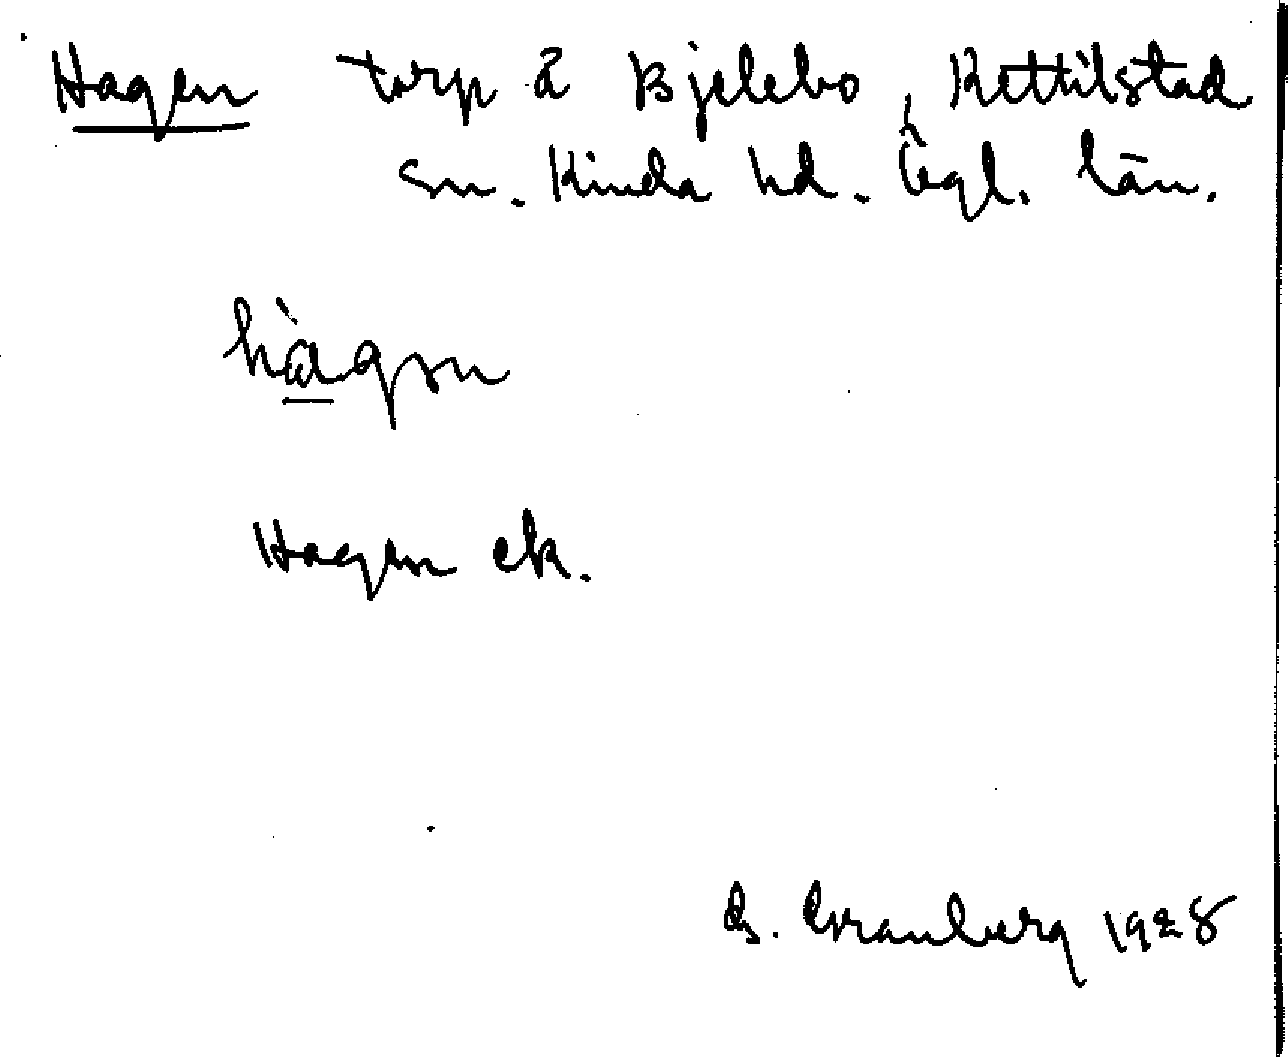 Hagen torp å Bjelebo, Kettilstad
sn. Kinda hd. Ögl. län.
hàgən
Hagen ek.
G. Granberg 1928